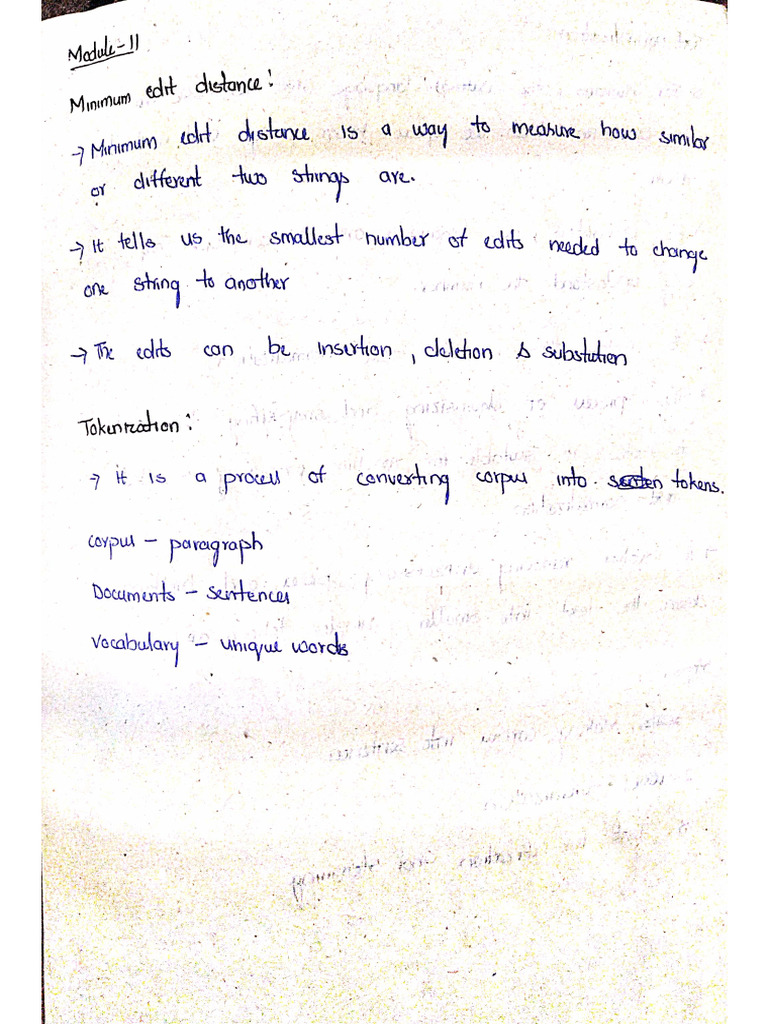 Module-II
Minimum edit distance:
→ Minimum edit distance is a way to measure how similar
or different two strings are.
→ It tells us the smallest number of edits needed to change
one string to another
→ The edits can be insertion, deletion & substution
Tokenization:
→ It is a process of converting corpus into tokens.
corpus – paragraph
Documents – sentences
Vocabulary – unique words